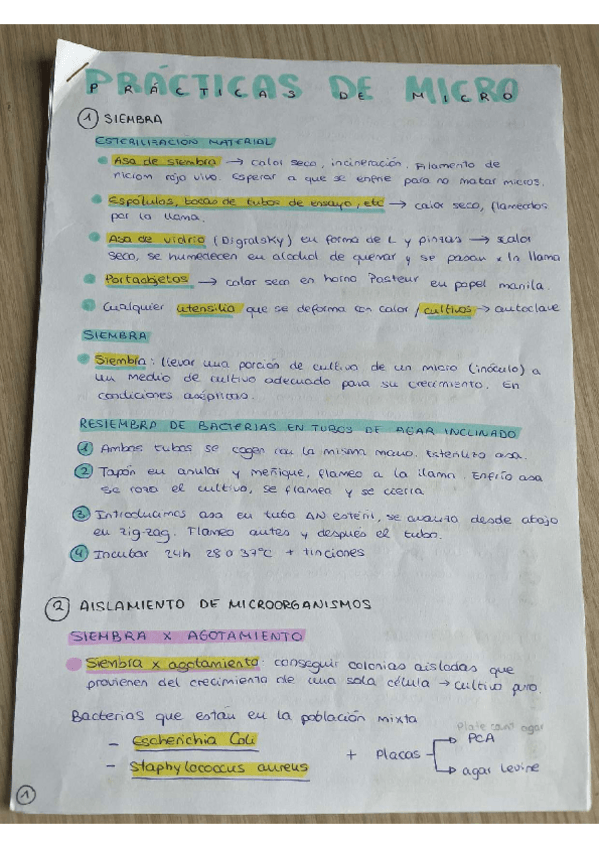 PRÁCTICAS DE MICRO
1 SIEMBRA
ESTERILIZACIÓN MATERIAL
Asa de siembra → calor seco, incineración. Filamento de
nicrom rojo vivo. Esperar a que se enfríe para no matar micros.
Espátulas, bocas de tubos de ensayo, etc → calor seco, flameados
por la llama.
Asa de vidrio (Digralsky) en forma de L y pinzas → calor
seco, se humedecen en alcohol de quemar y se pasan x la llama
Portaobjetos → calor seco en horno Pasteur en papel manila.
Cualquier utensilio que se deforma con calor / cultivos → autoclave
SIEMBRA
Siembra: llevar una porción de cultivo de un micro (inóculo) a
un medio de cultivo adecuado para su crecimiento. En
condiciones asépticas.
RESIEMBRA DE BACTERIAS EN TUBOS DE AGAR INCLINADO
1 Ambos tubos se cogen con la misma mano. Esterilizo asa.
2 Tapón en anular y meñique, flameo a la llama. Enfrío asa
se roza el cultivo, se flamea y se cierra
3 Introducimos asa en tubo AN estéril, se avanza desde abajo
en zig-zag. Flameo antes y después el tubo.
4 Incubar 24h 28 o 37°C + tinciones
2 AISLAMIENTO DE MICROORGANISMOS
SIEMBRA X AGOTAMIENTO
Siembra x agotamiento: conseguir colonias aisladas que
provienen del crecimiento de una sola célula → cultivo puro.
Bacterias que están en la población mixta
plate count agar
- Escherichia Coli
- Staphylococcus aureus
+ Placas → PCA
→ agar Levine
1